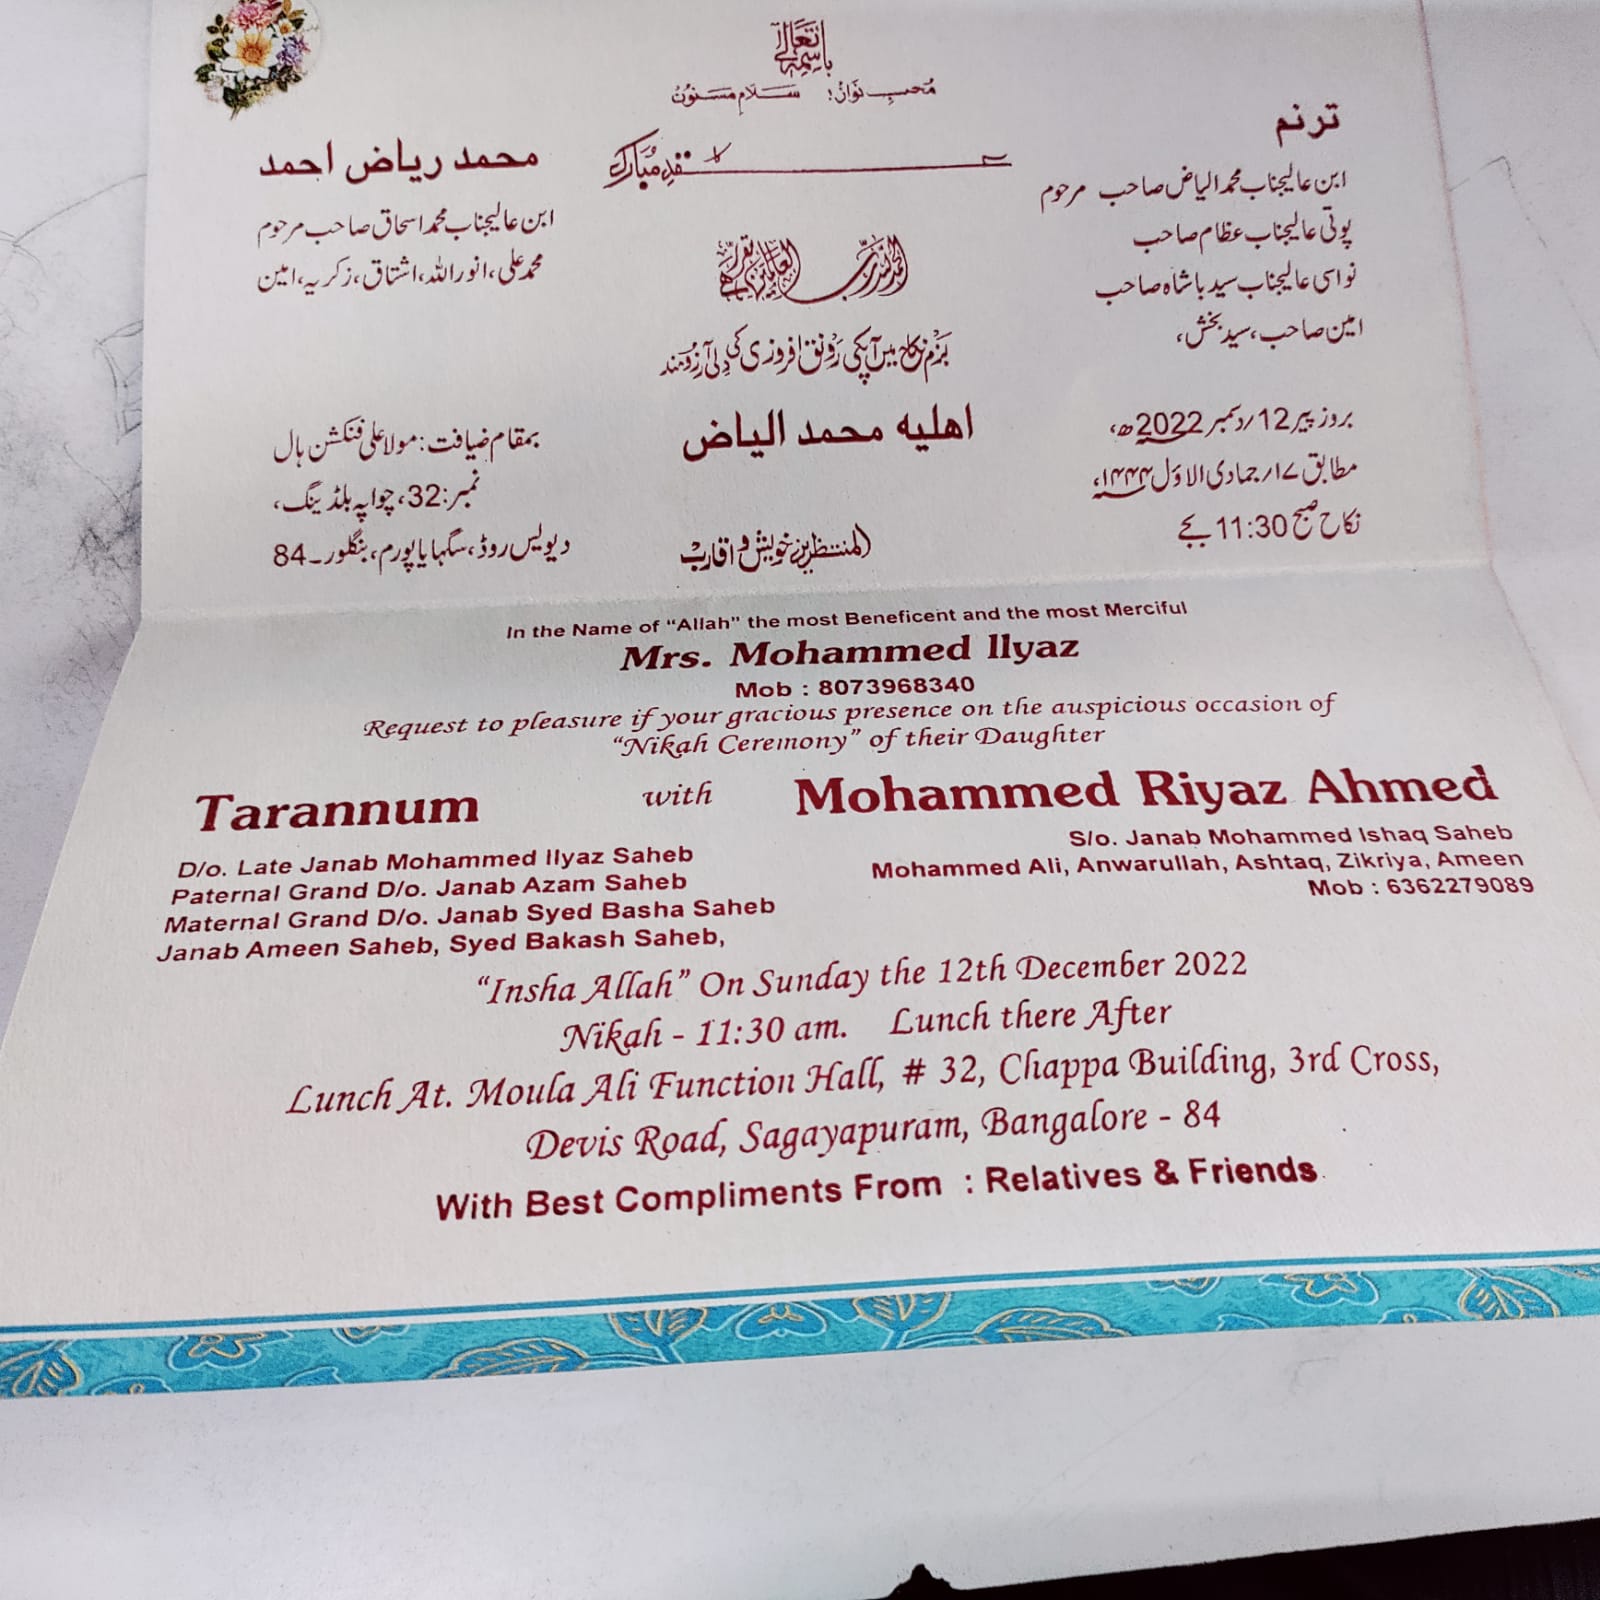 باسمہ تعالیٰ
محب نواز! سلام مسنون
ترنم
عقد مبارک
محمد ریاض احمد
ابن عالیجناب محمد الیاض صاحب مرحوم
پوتی عالیجناب عظام صاحب
نواسی عالیجناب سید باشاہ صاحب
امین صاحب، سید بخش،
ابن عالیجناب محمد اسحاق صاحب مرحوم
محمد علی، انور اللہ، اشتاق، زکریہ، امین
الحمد للہ رب العالمین
بزم نکاح میں آپکی رونق افروزی کی دلی آرزومند
اهلیه محمد الیاض
بروز پیر 12/دسمبر 2022ھ،
مطابق ۱۷/جمادی الاول ۱۴۴۴،
نکاح صبح 11:30 بجے
بمقام ضیافت: مولا علی فنکشن ہال
نمبر: 32، چواپہ بلڈینگ،
دیویس روڈ، سگہایاپورم، بنگلور۔84
المنتظرین خویش و اقارب
In the Name of “Allah” the most Beneficent and the most Merciful
Mrs. Mohammed Ilyaz
Mob : 8073968340
Request to pleasure if your gracious presence on the auspicious occasion of
“Nikah Ceremony” of their Daughter
Tarannum with Mohammed Riyaz Ahmed
D/o. Late Janab Mohammed Ilyaz Saheb
Paternal Grand D/o. Janab Azam Saheb
Maternal Grand D/o. Janab Syed Basha Saheb
Janab Ameen Saheb, Syed Bakash Saheb,
S/o. Janab Mohammed Ishaq Saheb
Mohammed Ali, Anwarullah, Ashtaq, Zikriya, Ameen
Mob : 6362279089
“Insha Allah” On Sunday the 12th December 2022
Nikah - 11:30 am. Lunch there After
Lunch At. Moula Ali Function Hall, # 32, Chappa Building, 3rd Cross,
Devis Road, Sagayapuram, Bangalore - 84
With Best Compliments From : Relatives & Friends